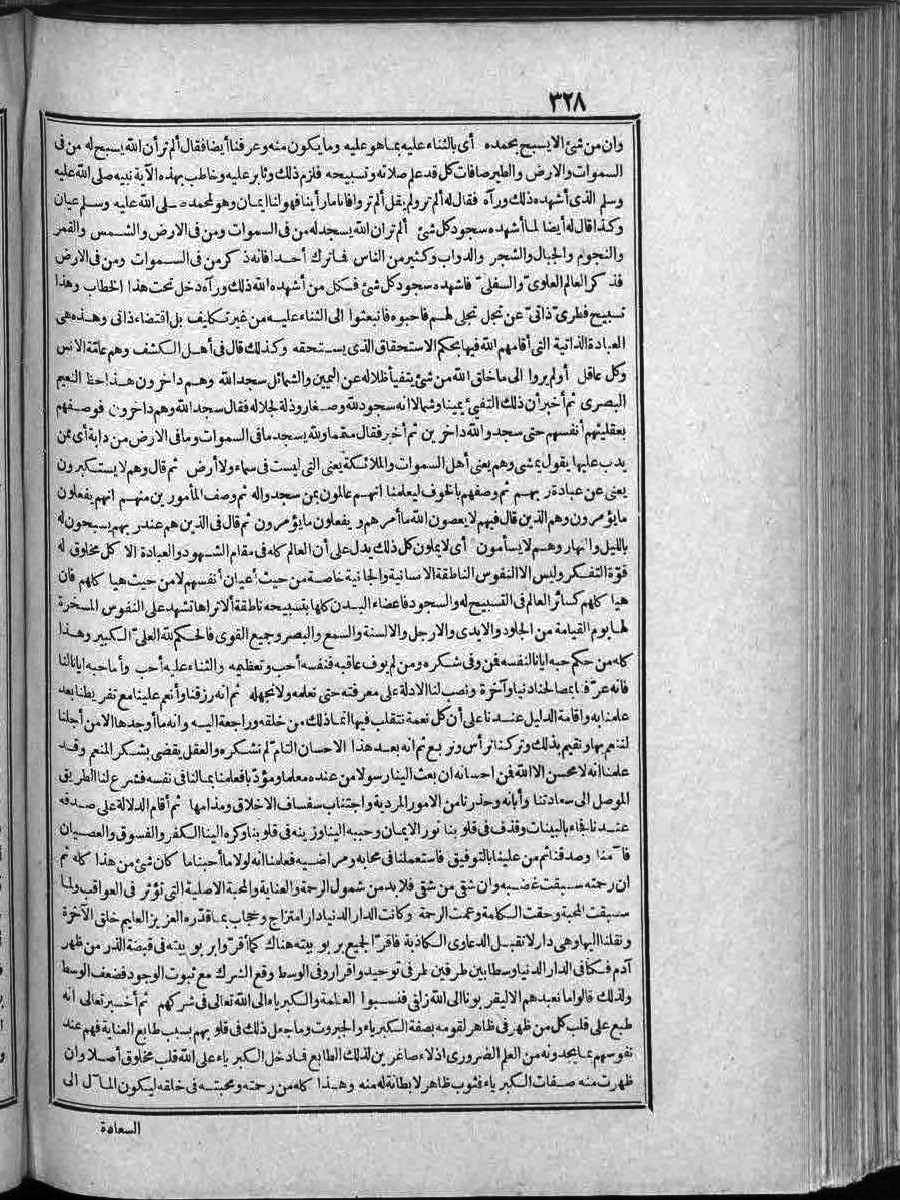 ٣٢٨
وان من شئ الا يسبح بحمده أى بالثناء عليه بما هو عليه وما يكون منه وعرفنا أيضا فقال ألم تر أن الله يسبح له من فى
السموات والارض والطير صافات كل قد علم صلاته وتسبيحه فلزم ذلك وثابر عليه وخاطب بهذه الآية نبيه صلى الله عليه
وسلم الذى أشهده ذلك ورآه فقال له ألم تر ولم يقل ألم تروا فانا ما رأينا فهو لنا ايمان وهو لمحمد صلى الله عليه وسلم عيان
وكذا قال له أيضا لما أشهده سجود كل شئ ألم تر ان الله يسجد له من فى السموات ومن فى الارض والشمس والقمر
والنجوم والجبال والشجر والدواب وكثير من الناس فما ترك أحدا فانه ذكر من فى السموات ومن فى الارض
فذكر العالم العلوى والسفلى فاشهده سجود كل شئ فكل من أشهده الله ذلك ورآه دخل تحت هذا الخطاب وهذا
تسبيح فطرى ذاتى عن تجل تجلى لهم فاحبوه فانبعثوا الى الثناء عليه من غير تكليف بل اقتضاء ذاتى وهذه هى
العبادة الذاتية التى أقامهم الله فيها بحكم الاستحقاق الذى يستحقه وكذلك قال فى أهل الكشف وهم عامّة الانس
وكل عاقل أولم يروا الى ما خلق الله من شئ يتفيأ ظلاله عن اليمين والشمائل سجدا لله وهم داخرون هذا حظ النعيم
البصرى ثم أخبر أن ذلك التفيئ يمينا وشمالا انه سجود لله وصغار وذلة لجلاله فقال سجدا لله وهم داخرون فوصفهم
بعقليتهم أنفسهم حتى سجدوا لله داخرين ثم أخبر فقال متمما ولله يسجد ما فى السموات وما فى الارض من دابة أى ممن
يدب عليها يقول يمشى وهم يعنى أهل السموات والملائكة يعنى التى ليست فى سماء ولا أرض ثم قال وهم لا يستكبرون
يعنى عن عبادة ربهم ثم وصفهم بالخوف ليعلمنا انهم عالمون بمن سجدوا له ثم وصف المأمورين منهم انهم يفعلون
ما يؤمرون وهم الذين قال فيهم لا يعصون الله ما أمرهم ويفعلون ما يؤمرون ثم قال فى الذين هم عند ربهم يسبحون له
بالليل والنهار وهم لا يسأمون أى لا يملون كل ذلك يدل على أن العالم كله فى مقام الشهود والعبادة الا كل مخلوق له
قوّة التفكر وليس الا النفوس الناطقة الانسانية والجانية خاصة من حيث أعيان أنفسهم لا من حيث هياكلهم فان
هياكلهم كسائر العالم فى التسبيح له والسجود فاعضاء البدن كلها بتسبيحه ناطقة ألا تراها تشهد على النفوس المسخرة
لها يوم القيامة من الجلود والايدى والارجل والالسنة والسمع والبصر وجميع القوى فالحكم لله العلىّ الكبير وهذا
كله من حكم حبه ايانا لنفسه فمن وفى شكره ومن لم يوف عاقبه فنفسه أحب وتعظيمه والثناء عليه أحب وأما حبه ايانا لنا
فانه عرّفنا بمصالحنا دنيا وآخرة ونصب لنا الادلة على معرفته حتى نعلمه ولا نجهله ثم انه رزقنا وأنعم علينا مع تفريطنا بعد
علمنا به واقامة الدليل عندنا على أن كل نعمة نتقلب فيها انما ذلك من خلقه وراجعة اليه وانه ما أوجدها الا من أجلنا
لننعم بها ونقيم بذلك وتركنا نرأس ونربع ثم انه بعد هذا الاحسان التام لم نشكره والعقل يقضى بشكر المنعم وقد
علمنا انه لا محسن الا الله فمن احسانه ان بعث الينا رسولا من عنده معلما ومؤدّبا فعلمنا بما لنا فى نفسه فشرع لنا الطريق
الموصل الى سعادتنا وأبانه وحذرنا من الامور المردية واجتناب سفساف الاخلاق ومذامها ثم أقام الدلالة على صدقه
عندنا فجاء بالبينات وقذف فى قلوبنا نور الايمان وحببه الينا وزينه فى قلوبنا وكره الينا الكفر والفسوق والعصيان
فآمنا وصدقنا ثم من علينا بالتوفيق فاستعملنا فى محابه ومراضيه فعلمنا انه لولا ما أحبنا ما كان شئ من هذا كله ثم
ان رحمته سبقت غضبه وان شقى من شقى فلا بد من شمول الرحمة والعناية والمحبة الاصلية التى تؤثر فى العواقب ولما
سبقت المحبة وحقت الكلمة وعمت الرحمة وكانت الدار الدنيا دار امتزاج وحجاب بما قدّره العزيز العليم خلق الآخرة
ونقلنا اليها وهى دار لا تقبل الدعاوى الكاذبة فاقرّ الجميع بربوبيته هناك كما أقرّوا بربوبيته فى قبضة الذر من ظهر
آدم فكنا فى الدار الدنيا وسطا بين طرفين طرفى توحيد واقرار وفى الوسط وقع الشرك مع ثبوت الوجود فضعف الوسط
ولذلك قالوا ما نعبدهم الا ليقربونا الى الله زلفى فنسبوا العظمة والكبرياء الى الله تعالى فى شركهم ثم أخبر تعالى انه
طبع على قلب كل من ظهر فى ظاهر لقومه بصفة الكبرياء والجبروت وما جعل ذلك فى قلوبهم بسبب طابع العناية فهم عند
نفوسهم بما يجدونه من العلم الضرورى اذلاء صاغرين لذلك الطابع فما دخل الكبرياء على الله قلب مخلوق أصلا وان
ظهرت منه صفات الكبرياء فثوب ظاهر لا بطانة له منه وهذا كله من رحمته ومحبته فى خلقه ليكون المآل الى
السعادة